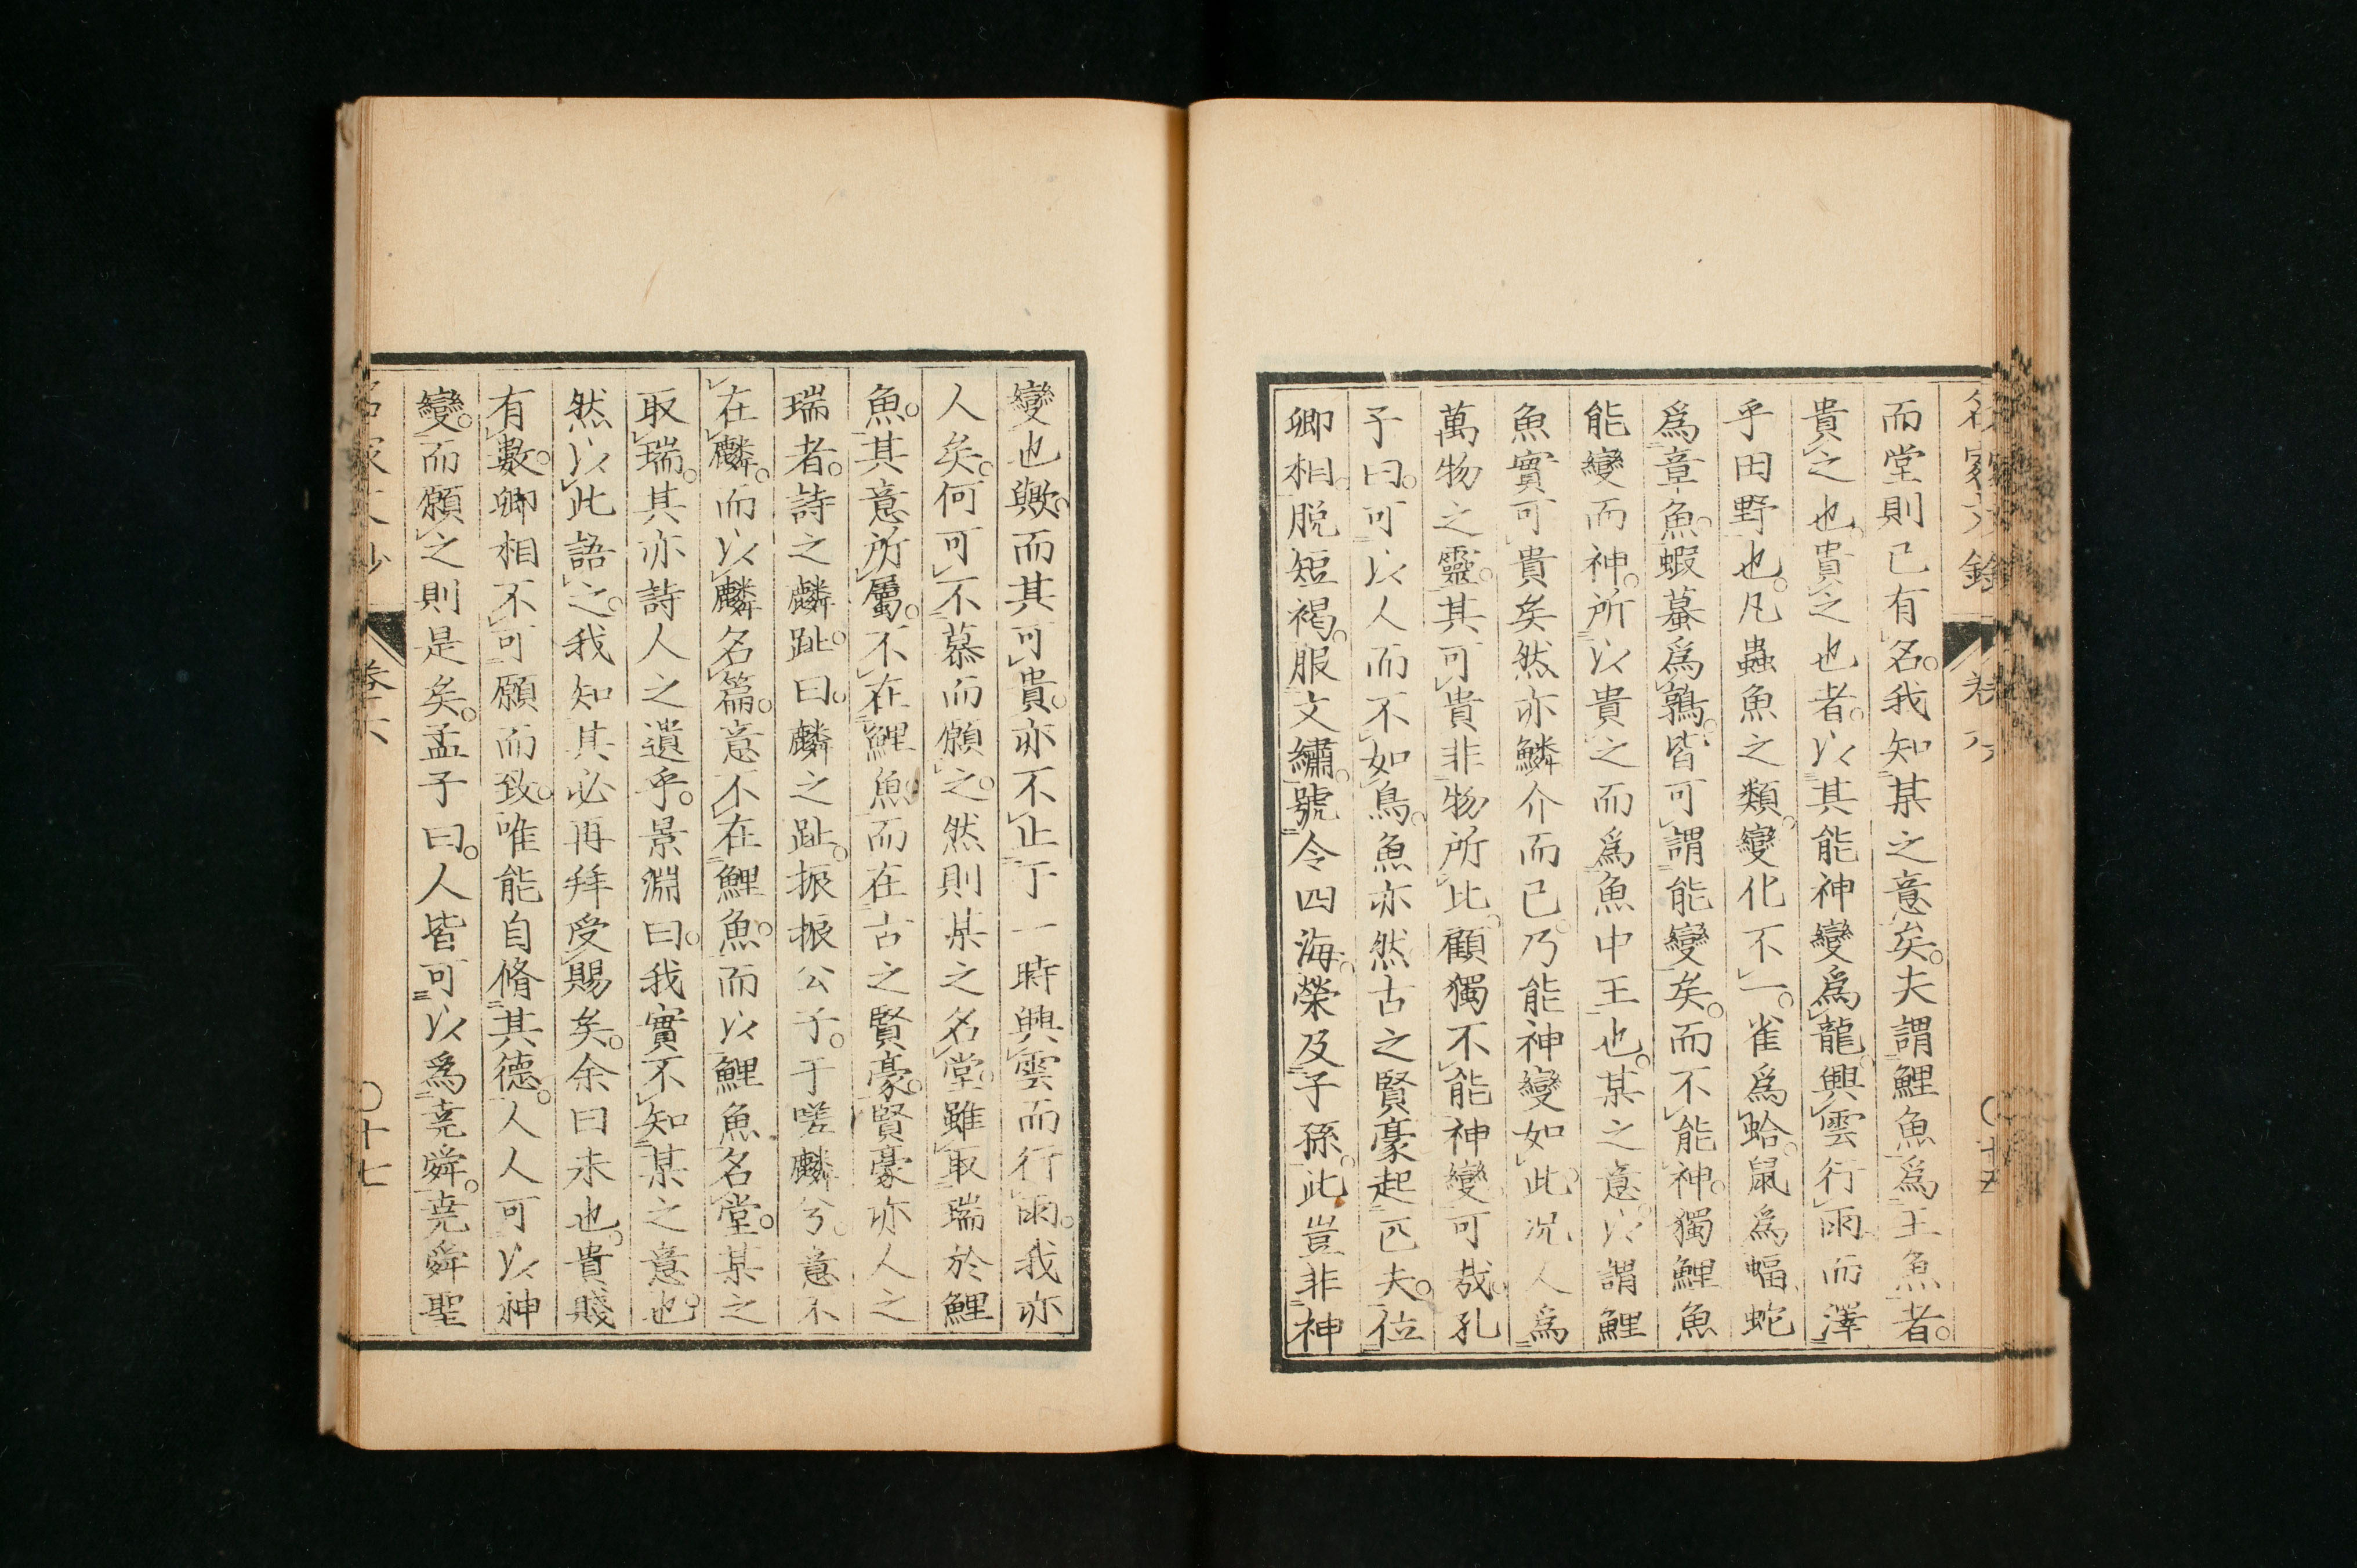 而堂則已有名。我知某之意矣。夫謂鯉魚爲王魚者。
貴之也。貴之也者。以其能神變爲龍。興雲行雨而澤
乎田野也。凡蟲魚之類。變化不一。雀爲蛤。鼠爲蝠。蛇
爲章魚。蝦蟇爲鶉。皆可謂能變矣。而不能神。獨鯉魚
能變而神。所以貴之而爲魚中王也。某之意以謂鯉
魚實可貴矣然亦鱗介而已。乃能神變如此。况人爲
萬物之靈。其可貴非物所比。顧獨不能神變可哉。孔
子曰。可以人而不如鳥。魚亦然。古之賢豪起匹夫。位
卿相。脱短褐。服文繡。號令四海。榮及子孫。此豈非神
變也歟。而其可貴。亦不止丁一時興雲而行雨。我亦
人矣。何可不慕而願之。然則某之名堂。雖取瑞於鯉
魚。其意所屬。不在鯉魚而在古之賢豪。賢豪亦人之
瑞者。詩之麟趾。曰。麟之趾。振振公子。于嗟麟兮。意不
在麟。而以麟名篇。意不在鯉魚。而以鯉魚名堂。某之
取瑞。其亦詩人之遺乎。景淵曰。我實不知某之意也。
然以此語之。我知其必再拜受賜矣。余曰未也。貴賤
有數。卿相不可願而致。唯能自脩其德。人人可以神
變。而願之則是矣。孟子曰。人皆可以爲堯舜。堯舜聖
卷六
〇十七